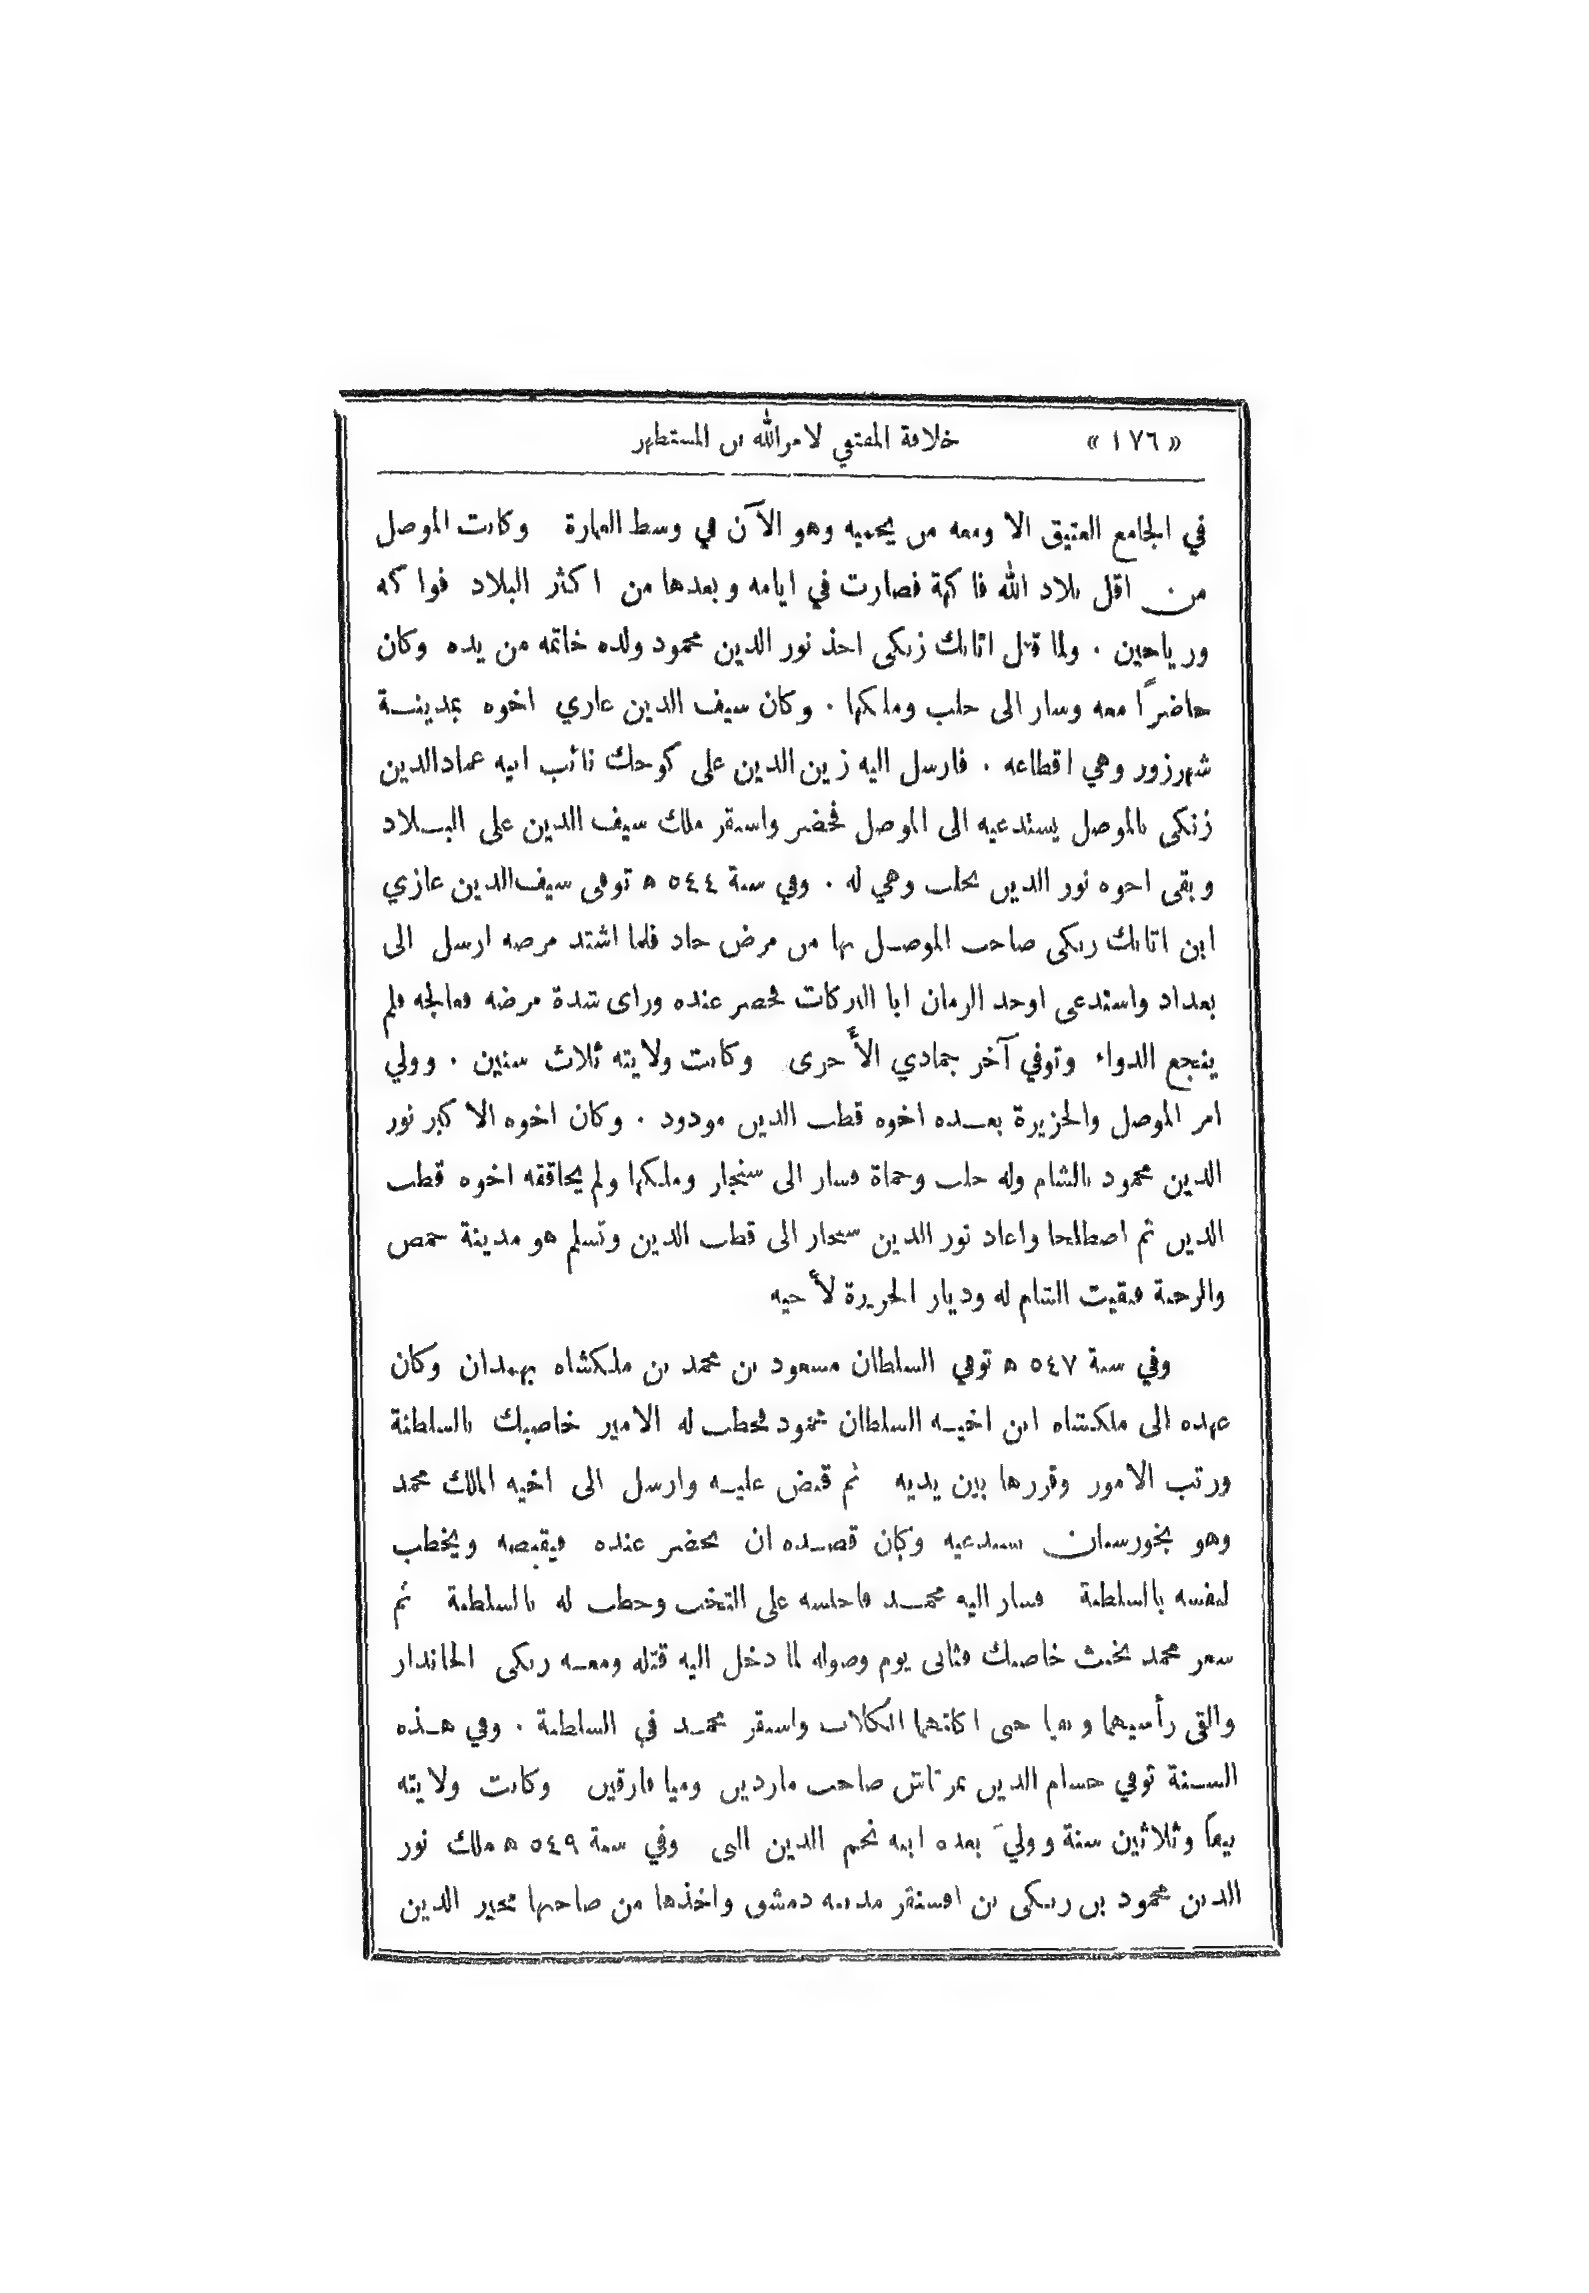 «١٧٦» خلافة المقتفي لامرالله بن المستظهر
في الجامع العتيق الا ومعه من يحميه وهو الآن في وسط العمارة وكانت الموصل
من اقل بلاد الله فاكهة فصارت في ايامه وبعدها من اكثر البلاد فواكه
ورياحين . ولما قتل اتابك زنكى اخذ نور الدين محمود ولده خاتمه من يده وكان
حاضرًا معه وسار الى حلب وملكها . وكان سيف الدين غازي اخوه بمدينـة
شهرزور وهي اقطاعه . فارسل اليه زين الدين على كوجك نائب ابيه عمادالدين
زنكى بالموصل يستدعيه الى الموصل فحضر واستقر ملك سيف الدين على البـلاد
وبقى اخوه نور الدين بحلب وهي له . وفي سنة ٥٤٤ ه توفى سيف الدين غازي
ابن اتابك زنكى صاحب الموصل بها من مرض حاد فلما اشتد مرضه ارسل الى
بغداد واستدعى اوحد الزمان ابا البركات فحضر عنده وراى شدة مرضه فعالجه فلم
ينجع الدواء وتوفي آخر جمادي الأخرى وكانت ولايته ثلاث سنين . وولي
امر الموصل والجزيرة بعـده اخوه قطب الدين مودود . وكان اخوه الاكبر نور
الدين محمود بالشام وله حلب وحماة فسار الى سنجار وملكها ولم يحاققه اخوه قطب
الدين ثم اصطلحا واعاد نور الدين سنجار الى قطب الدين وتسلم هو مدينة حمص
والرحبة فبقيت الشام له وديار الجزيرة لأخيه
وفي سنة ٥٤٧ ه توفي السلطان مسعود بن محمد بن ملكشاه بهمدان وكان
عهده الى ملكشاه ابن اخيـه السلطان محمود فخطب له الامير خاصبك بالسلطنة
ورتب الامور وقررها بين يديه ثم قبض عليـه وارسل الى اخيه الملك محمد
وهو بخورستان يستدعيه وكان قصـده ان يحضر عنده فيقبضه ويخطب
لنفسه بالسلطنة فسار اليه محمـد فاجلسه على التخت وخطب له بالسلطنة ثم
شعر محمد بخبث خاصبك فثانى يوم وصوله لما دخل اليه قتله ومعـه زنكى الجاندار
والقى رأسيهما وبقيا حتى اكلتهما الكلاب واستقر محمـد في السلطنة . وفي هـذه
السـنة توفي حسام الدين تمرتاش صاحب ماردين وميافارقين وكانت ولايته
نيفًا وثلاثين سنة ووليَ بعده ابنه نجم الدين البى وفي سنة ٥٤٩ ه ملك نور
الدين محمود بن زنـكى بن اقسنقر مدينه دمشق واخذها من صاحبها مجير الدين